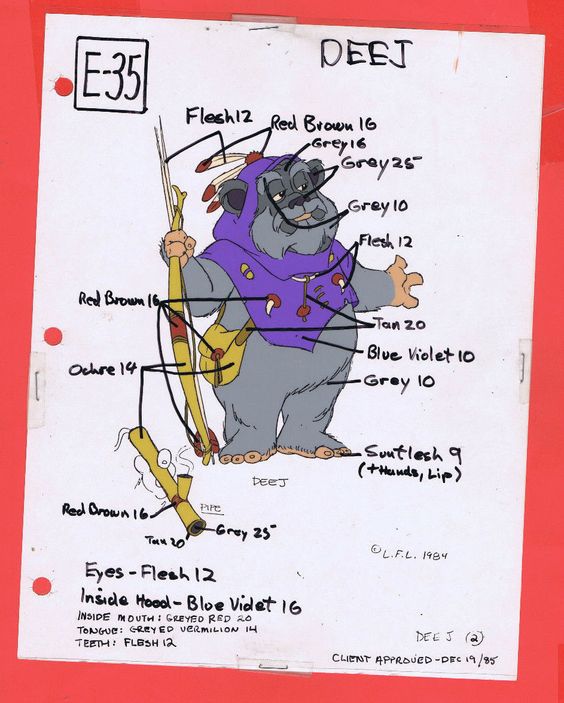 E-35
DEEJ
Flesh 12
Red Brown 16
Grey 16
Grey 25
Grey 10
Flesh 12
Red Brown 16
Tan 20
Blue Violet 10
Ochre 14
Grey 10
Sunflesh 9
(+Hands, Lip)
DEEJ
Red Brown 16
PIPE
Grey 25
Tan 20
© L.F.L. 1984
Eyes - Flesh 12
Inside Hood - Blue Violet 16
INSIDE MOUTH: GREYED RED 20
TONGUE: GREYED VERMILION 14
TEETH: FLESH 12
DEEJ (2)
CLIENT APPROVED - DEC 19/85